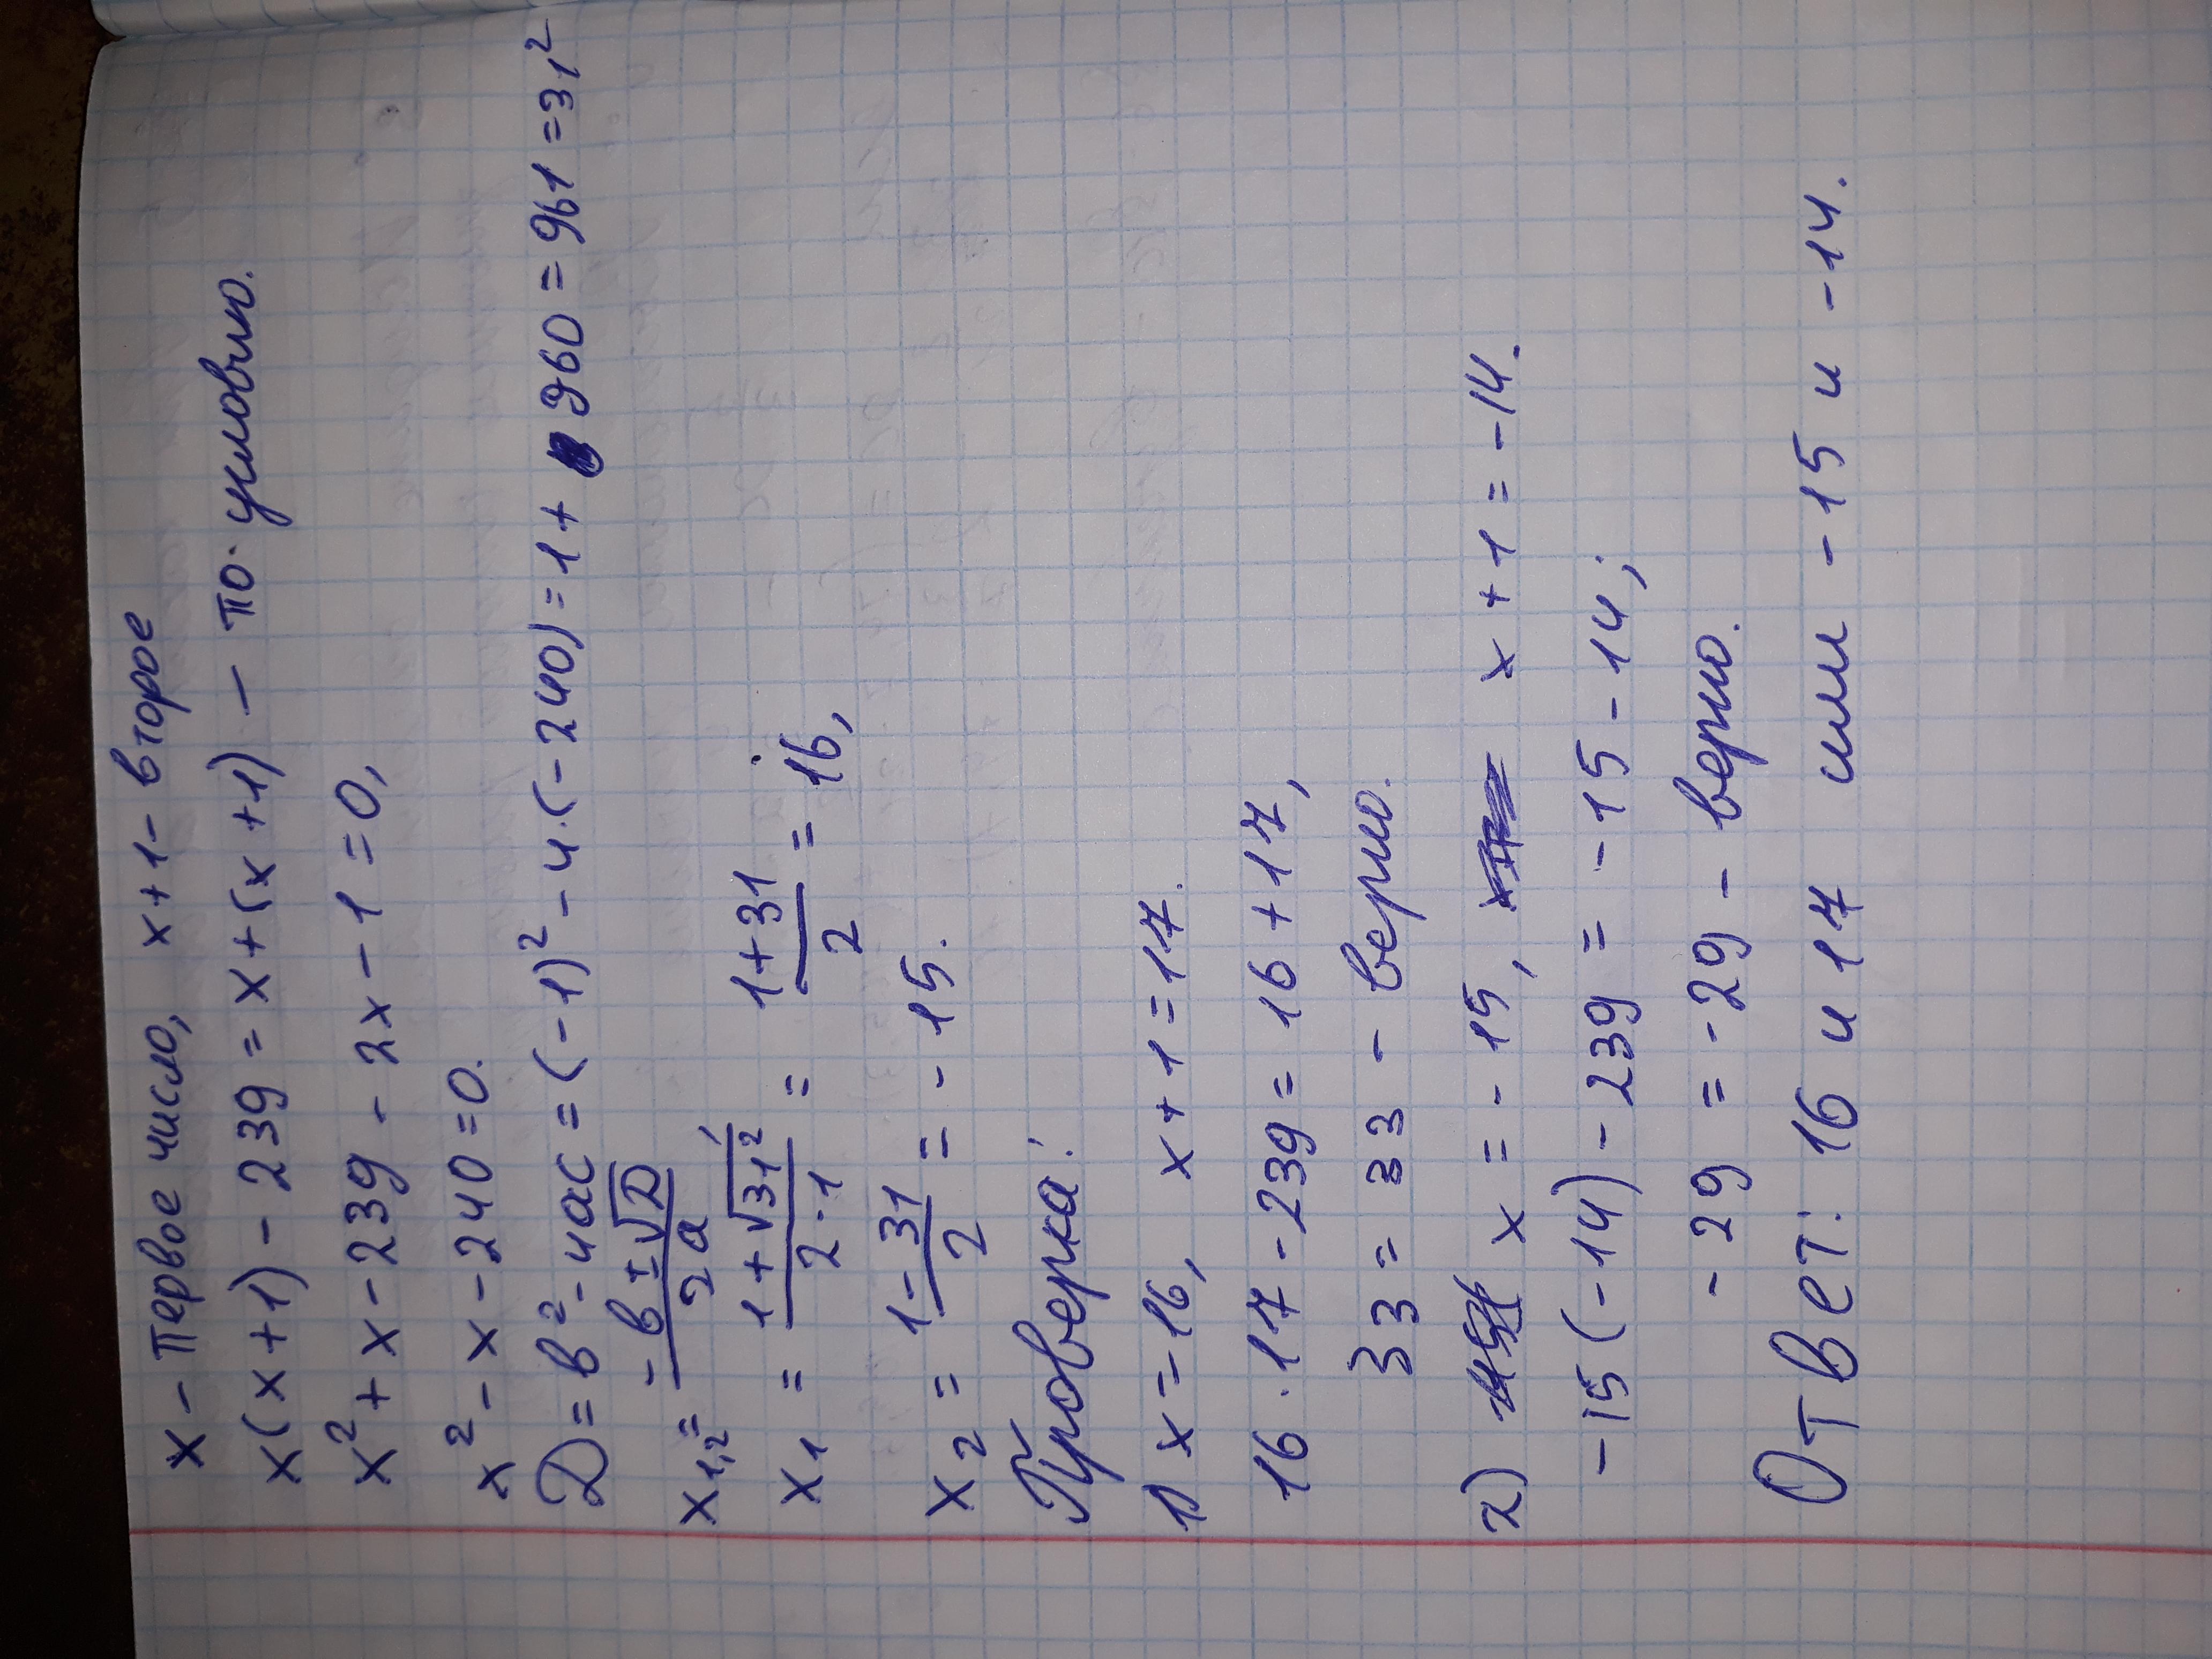 x – первое число, x+1 – второе
x(x+1) - 239 = x+(x+1) – по условию.
x² + x - 239 - 2x - 1 = 0,
x² - x - 240 = 0.
D = в² - 4ac = (-1)² - 4·(-240) = 1 + 960 = 961 = 31²
x₁,₂ = (-в ± √D)/2a
x₁ = (1 + √31²)/(2·1) = (1+31)/2 = 16,
x₂ = (1-31)/2 = -15.
Проверка:
1) x = 16, x+1 = 17.
16·17 - 239 = 16 + 17,
33 = 33 – верно.
2) x = -15, x+1 = -14.
-15(-14) - 239 = -15 - 14;
-29 = -29 – верно.
Ответ: 16 и 17 или -15 и -14.